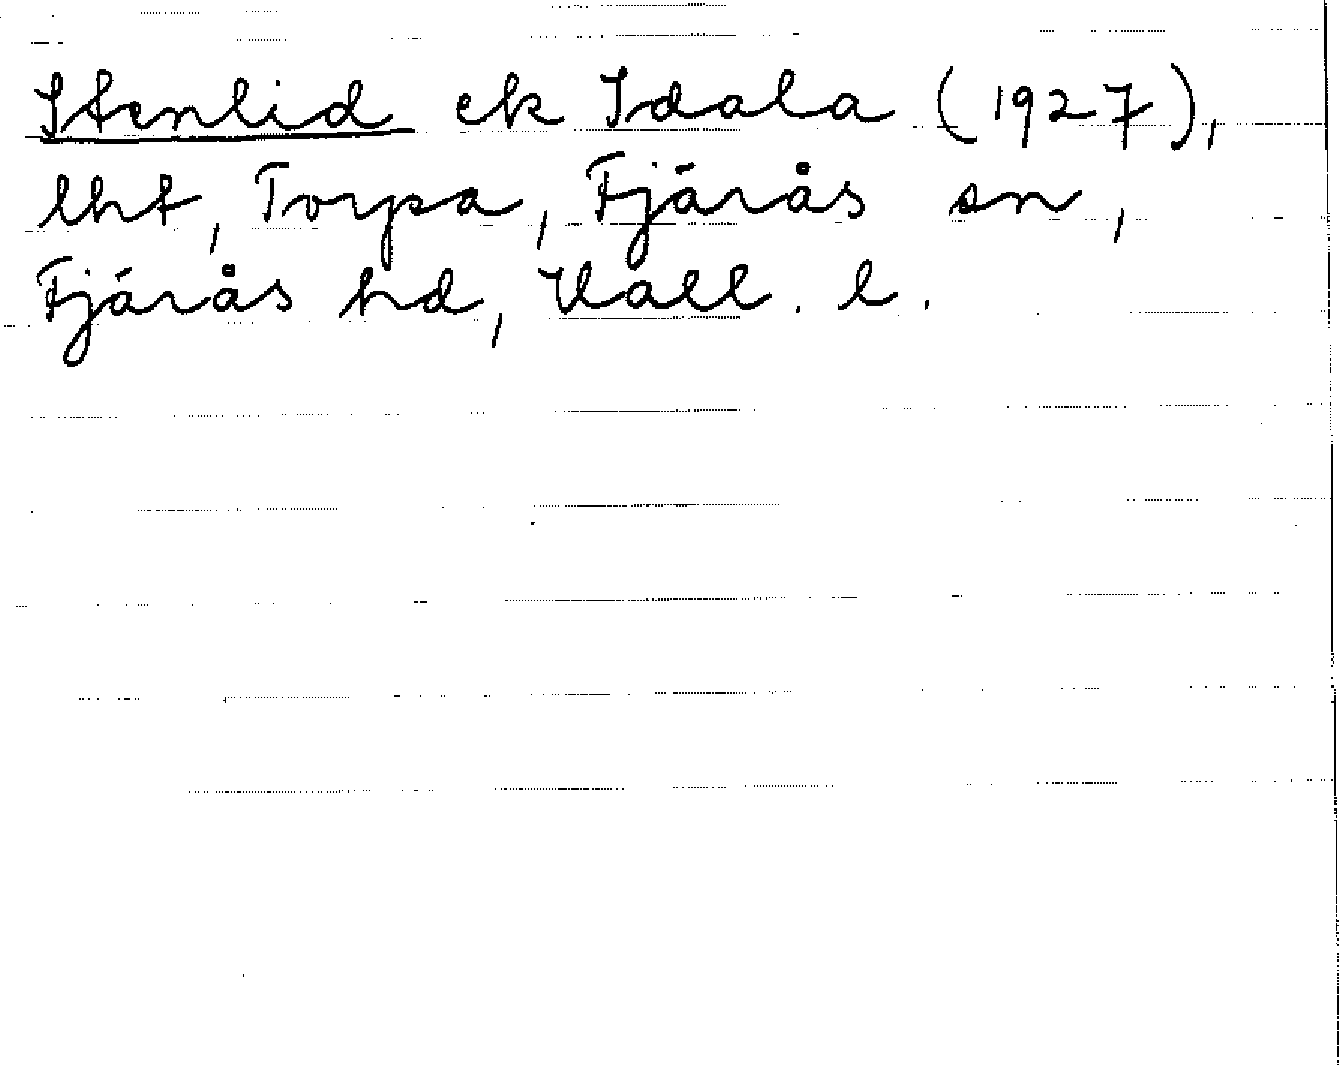 Stenlid ek Idala (1927),
lht, Torpa, Fjärås sn,
Fjärås hd, Hall. l.